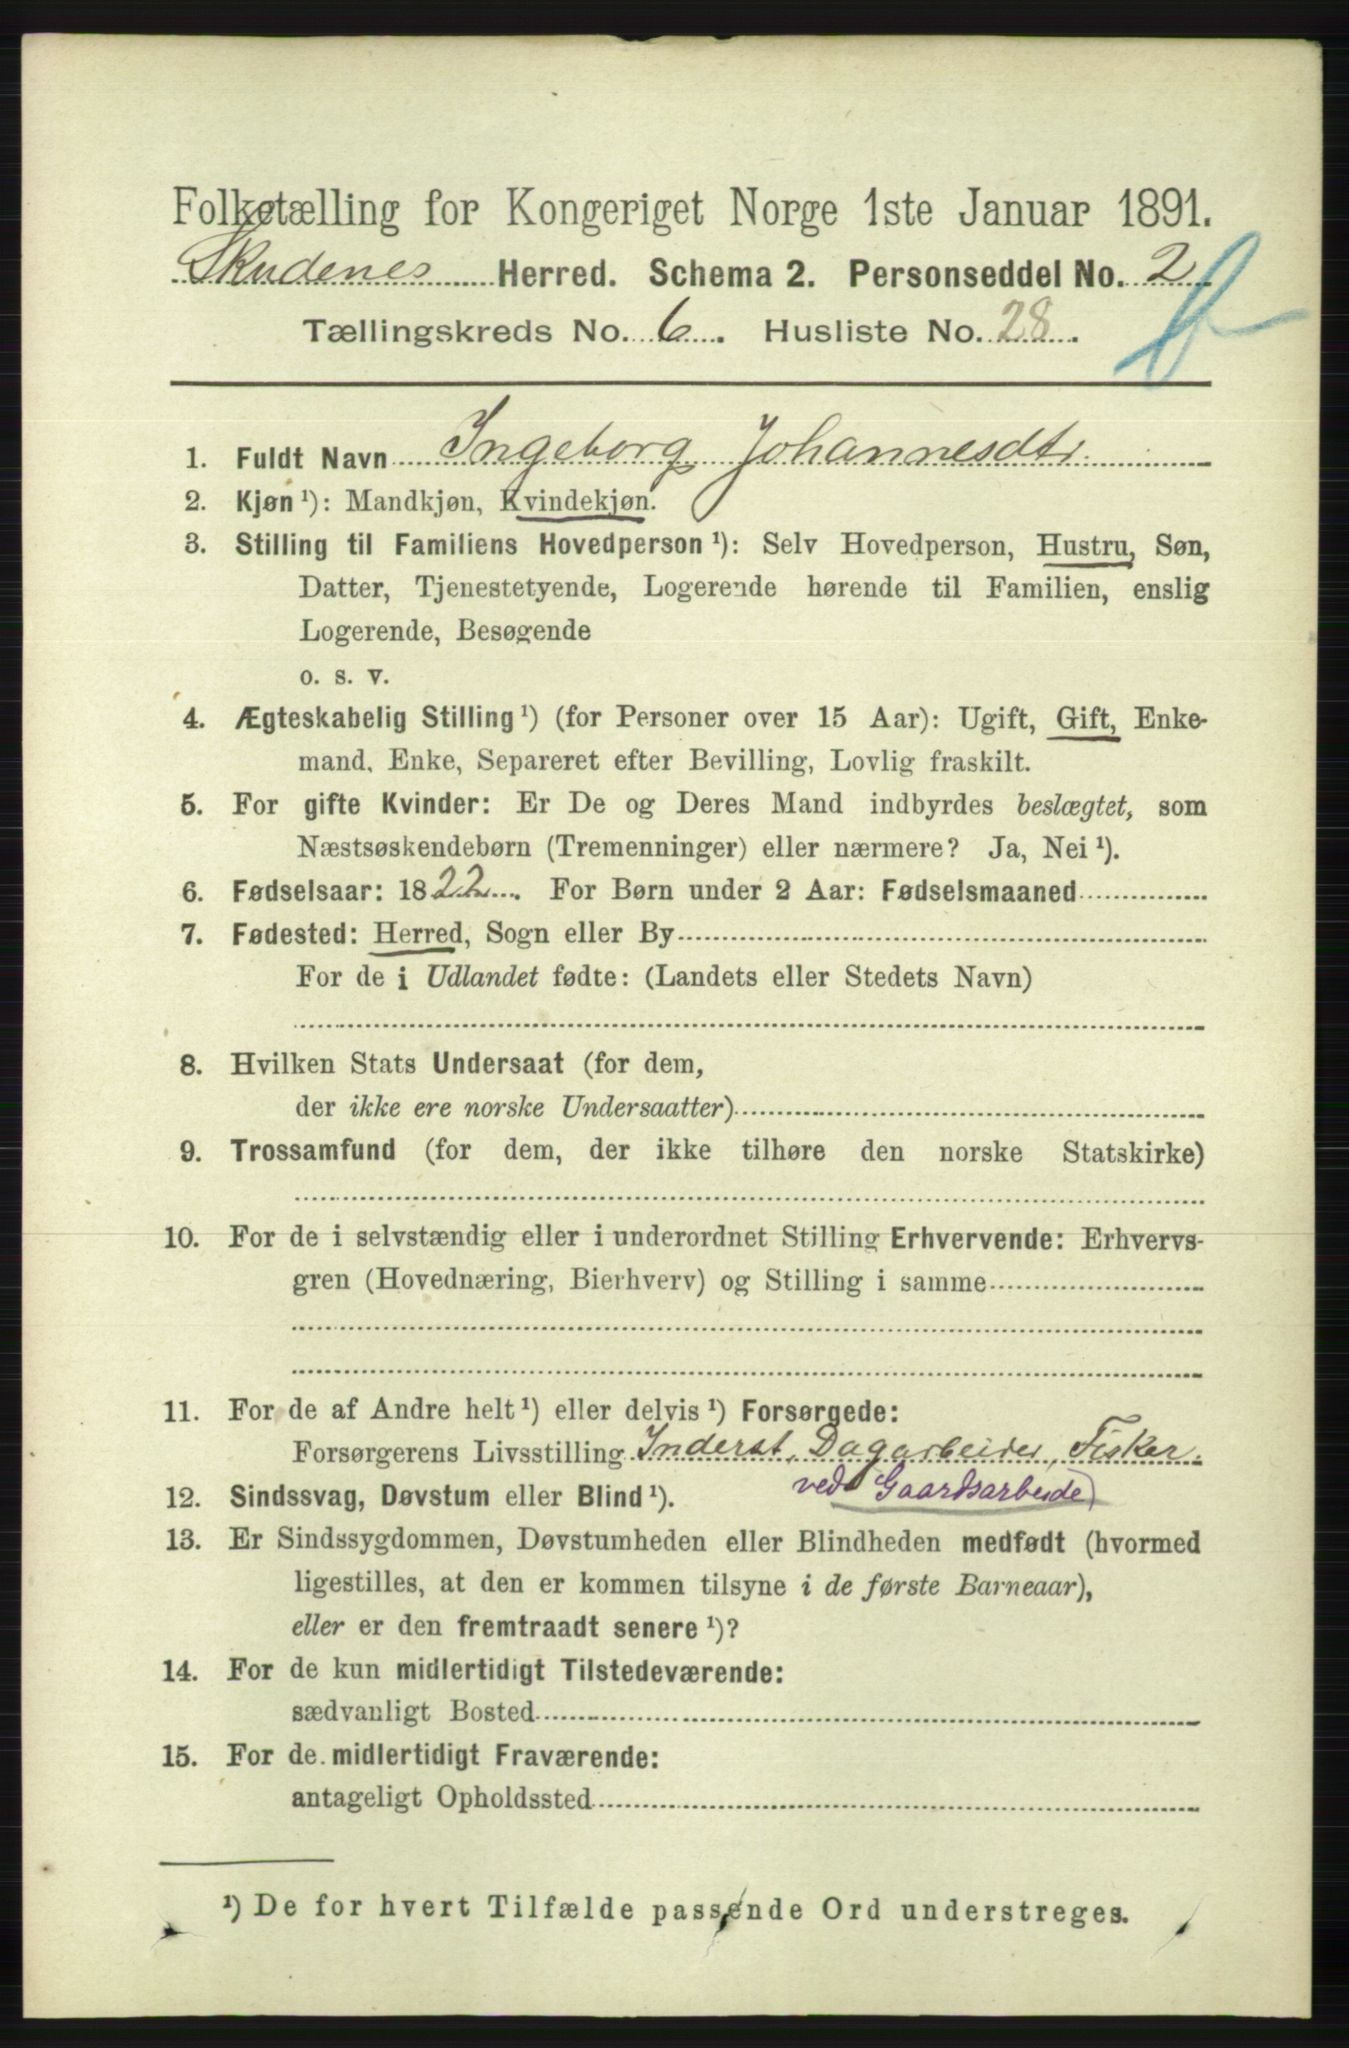 Folketælling for Kongeriget Norge 1ste Januar 1891.
Skudenes Herred. Schema 2. Personseddel No. 2
Tællingskreds No. 6. Husliste No. 28.
1. Fuldt Navn Ingeborg Johannesdtr.
2. Kjøn ¹): Mandkjøn, Kvindekjøn.
3. Stilling til Familiens Hovedperson ¹): Selv Hovedperson, Hustru, Søn,
Datter, Tjenestetyende, Logerende hørende til Familien, enslig
Logerende, Besøgende
o. s. v.
4. Ægteskabelig Stilling ¹) (for Personer over 15 Aar): Ugift, Gift, Enke-
mand, Enke, Separeret efter Bevilling, Lovlig fraskilt.
5. For gifte Kvinder: Er De og Deres Mand indbyrdes beslægtet, som
Næstsøskendebørn (Tremenninger) eller nærmere? Ja, Nei ¹).
6. Fødselsaar: 1822. For Børn under 2 Aar: Fødselsmaaned
7. Fødested: Herred, Sogn eller By
For de i Udlandet fødte: (Landets eller Stedets Navn)
8. Hvilken Stats Undersaat (for dem,
der ikke ere norske Undersaatter)
9. Trossamfund (for dem, der ikke tilhøre den norske Statskirke)
10. For de i selvstændig eller i underordnet Stilling Erhvervende: Erhvervs-
gren (Hovednæring, Bierhverv) og Stilling i samme
11. For de af Andre helt ¹) eller delvis ¹) Forsørgede:
Forsørgerens Livsstilling Inderst, Dagarbeider, Fisker.
ved Gaardsarbeide)
12. Sindssvag, Døvstum eller Blind ¹).
13. Er Sindssygdommen, Døvstumheden eller Blindheden medfødt (hvormed
ligestilles, at den er kommen tilsyne i de første Barneaar),
eller er den fremtraadt senere ¹)?
14. For de kun midlertidigt Tilstedeværende:
sædvanligt Bosted
15. For de midlertidigt Fraværende:
antageligt Opholdssted
¹) De for hvert Tilfælde passende Ord understreges.